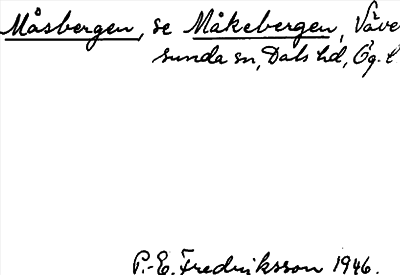 Måsbergen, se Måkebergen, Väver
sunda sn, Dals hd, Ög. l
P.-E. Fredriksson 1946.